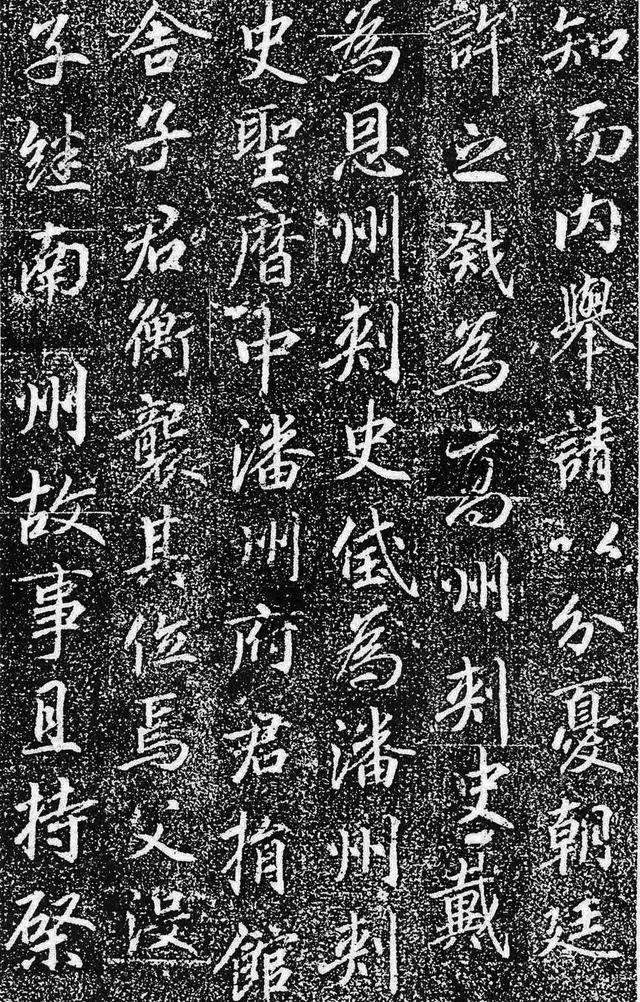 知而内舉請以分憂朝廷
許之戣為高州刾史戴
為恩州刾史為潘州刾
史聖曆中潘州府君捐館
舍子君衡襲其位焉父没
子継南州故事且持棨